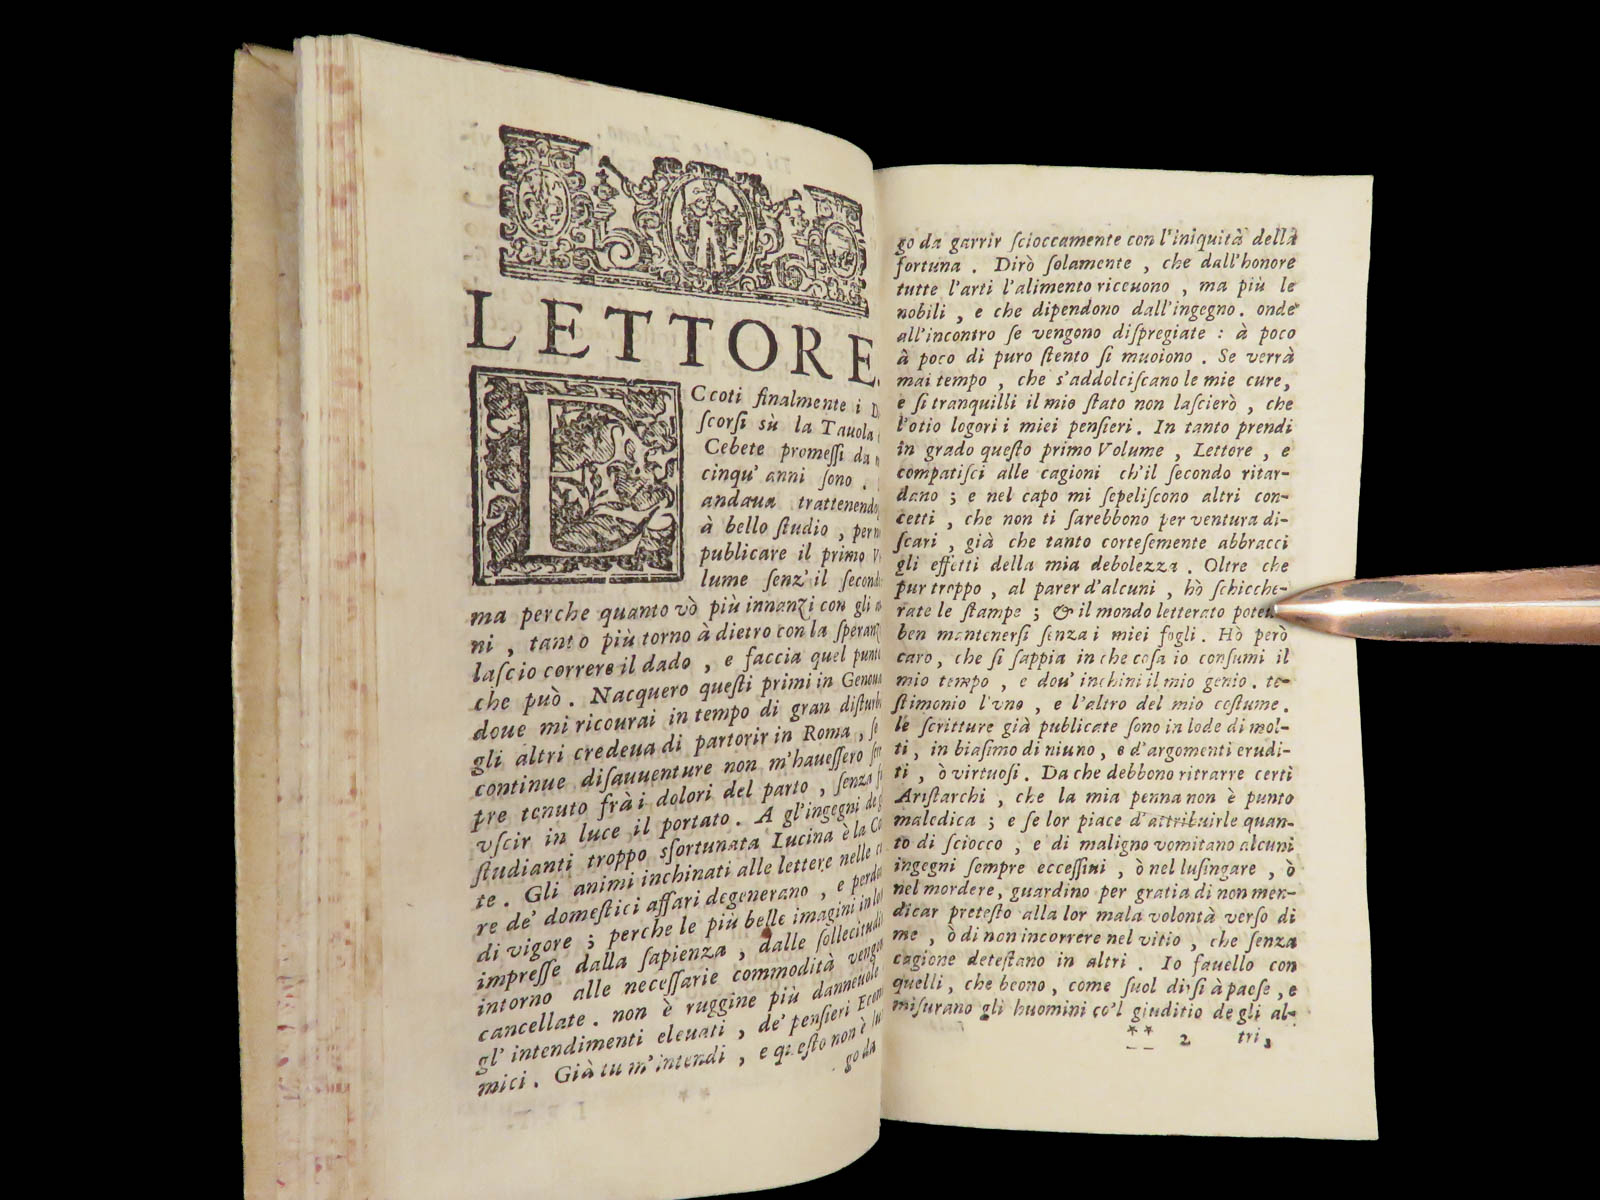 LETTORE.
ECcoti finalmente i
ſcorſi sù la Tauola
Cebete promeſſi da
cinqu' anni ſono.
andaua trattenendo
à bello ſtudio, per
publicare il primo
lume ſenz' il
ma perche quanto vò più innanzi con gli
ni, tanto più torno à dietro con la
laſcio correre il dado, e faccia quel
che può. Nacquero queſti primi in
doue mi ricourai in tempo di gran
gli altri credeua di partorir in Roma,
continue diſauuenture non m'haueſſero
pre tenuto frà i dolori del parto, ſenza
vſcir in luce il portato. A gl'ingegni
ſtudianti troppo sfortunata Lucina è la
te. Gli animi inchinati alle lettere nelle
re de' domeſtici affari degenerano, e
di vigore; perche le più belle imagini in
impreſſe dalla ſapienza, dalle
intorno alle neceſſarie commodità
cancellate. non è ruggine più danneuole
gl' intendimenti eleuati, de' penſieri
mici. Già tu m'intendi, e queſto non è
go da
go da garrir ſcioccamente con l'iniquità della
fortuna. Dirò ſolamente, che dall'honore
tutte l'arti l'alimento riceuono, ma più le
nobili, e che dipendono dall'ingegno. onde
all'incontro ſe vengono diſpregiate: à poco
à poco di puro ſtento ſi muoiono. Se verrà
mai tempo, che s'addolciſcano le mie cure,
e ſi tranquilli il mio ſtato non laſcierò, che
l'otio logori i miei penſieri. In tanto prendi
in grado queſto primo Volume, Lettore, e
compatiſci alle cagioni ch'il ſecondo ritar-
dano; e nel capo mi ſepeliſcono altri con-
cetti, che non ti ſarebbono per ventura di-
ſcari, già che tanto corteſemente abbracci
gli effetti della mia debolezza. Oltre che
pur troppo, al parer d'alcuni, hò ſchicche-
rate le ſtampe; & il mondo letterato
ben mantenerſi ſenza i miei fogli. Hò però
caro, che ſi ſappia in che coſa io conſumi il
mio tempo, e dou' inchini il mio genio. te-
ſtimonio l'vno, e l'altro del mio coſtume.
le ſcritture già publicate ſono in lode di mol-
ti, in biaſimo di niuno, e d'argomenti erudi-
ti, ò virtuoſi. Da che debbono ritrarre certi
Ariſtarchi, che la mia penna non è punto
maledica; e ſe lor piace d'attribuirle quan-
to di ſciocco, e di maligno vomitano alcuni
ingegni ſempre ecceſſiui, ò nel luſingare, ò
nel mordere, guardino per gratia di non men-
dicar preteſto alla lor mala volontà verſo di
me, ò di non incorrere nel vitio, che ſenza
cagione deteſtano in altri. Io fauello con
quelli, che beono, come ſuol dirſi à paeſe, e
miſurano gli huomini co'l giuditio de gli al-
** 2 tri,